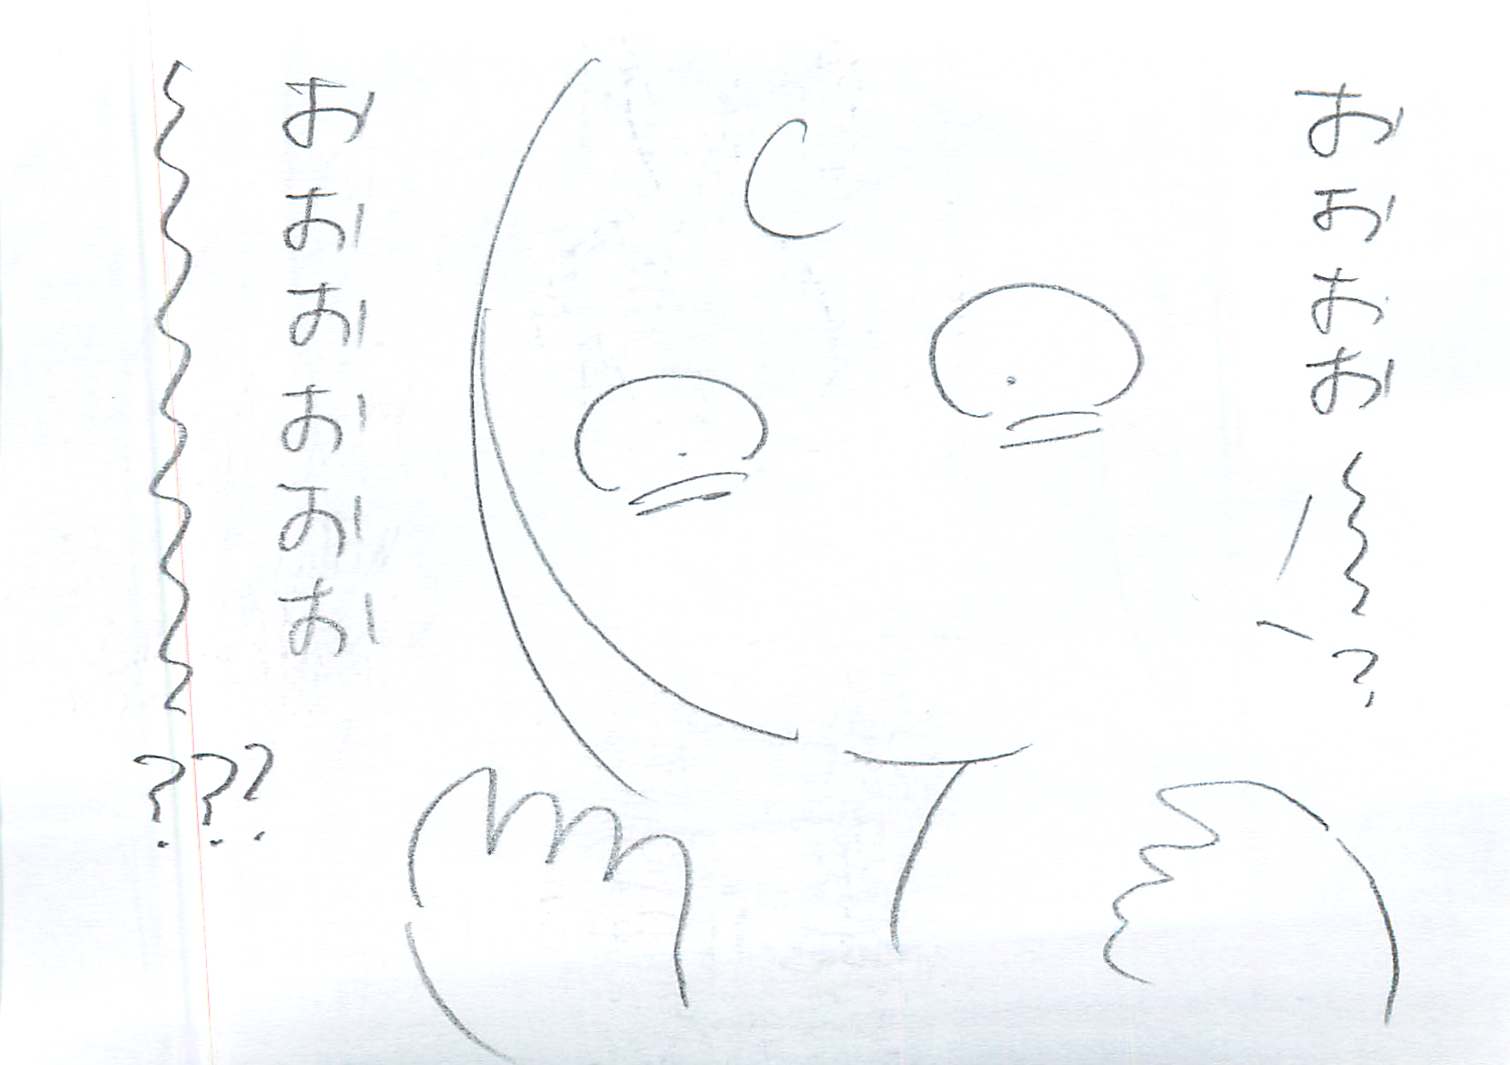 おおおお〜?
おおおおおお〜???